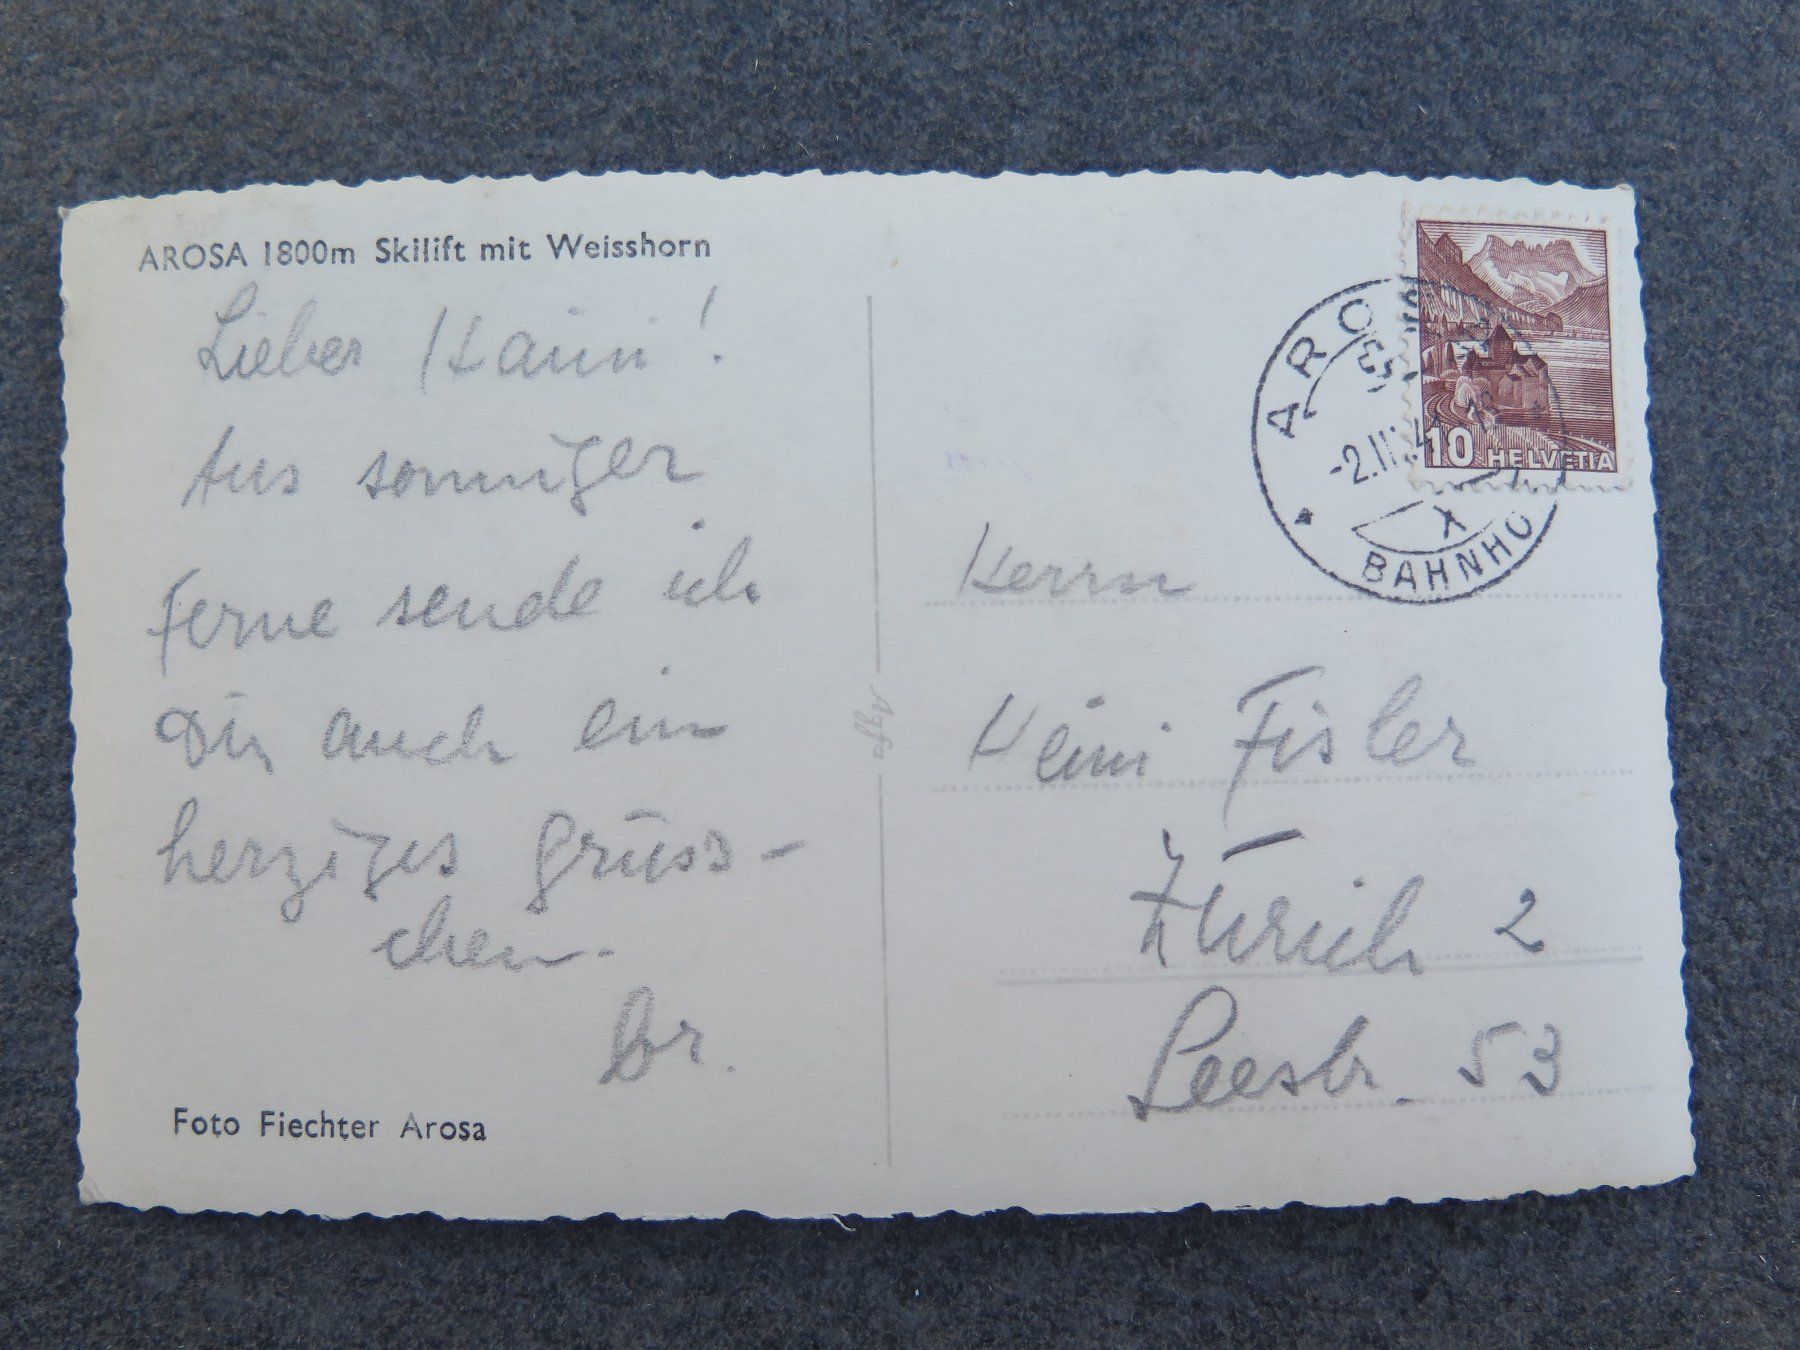 AROSA 1800m Skilift mit Weisshorn
Lieber Haini!
Aus sonniger
Ferne sende ich
Dir auch ein
herziges Grüss-
chen.
Br.
Foto Fiechter Arosa
Agfa
ARO
-2.II.
X
BAHNHO
10 HELVETIA
Herrn
Heini Fisler
Zürich 2
Seestr. 53